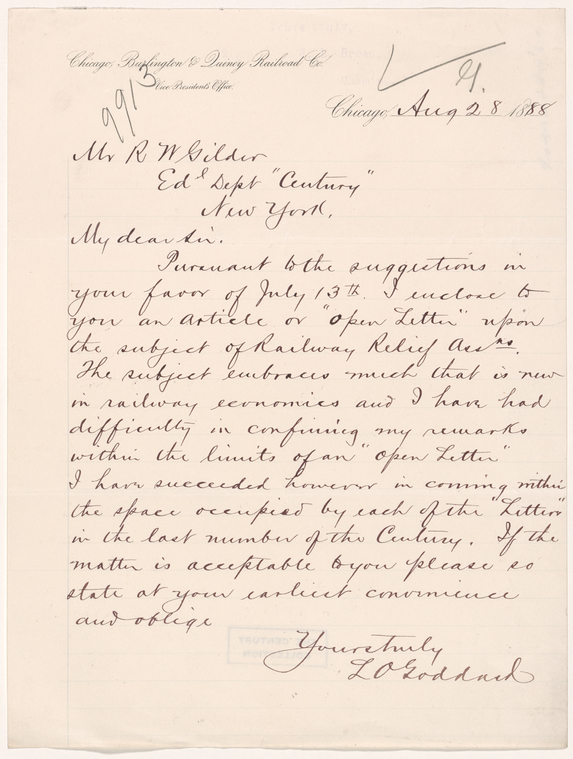 Chicago, Burlington & Quincy Railroad Co.
Vice President's Office.
9913
G.
Chicago, Aug 28 1888
Mr R W Gilder
Ed'l Dept "Century"
New York.
My dear Sir.
Pursuant to the suggestions in
your favor of July 13th. I enclose to
you an article or "open Letter" upon
the subject of Railway Relief Assns.
The subject embraces much that is new
in railway economics and I have had
difficulty in confining my remarks
within the limits of an "open Letter"
I have succeeded however in coming within
the space occupied by each of the "Letters"
in the last number of the Century. If the
matter is acceptable to you please so
state at your earliest convenience
and oblige
Yours truly
L O Goddard